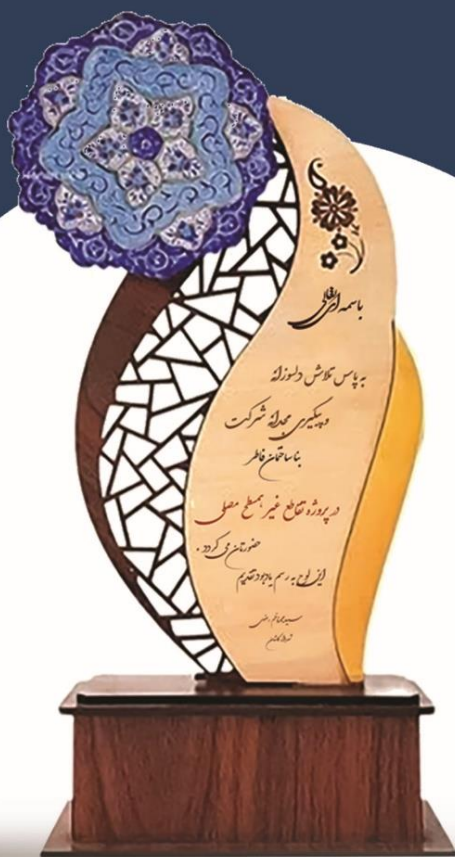 باسمه تعالی
به پاس تلاش دلسوزانه
و پیگیری مجدانه شرکت
بنا ساختمان فاطر
در پروژه تقاطع غیر همسطح مصلی
حضورتان می گردد.
این لوح به رسم یادبود تقدیم
شهردار کاشان